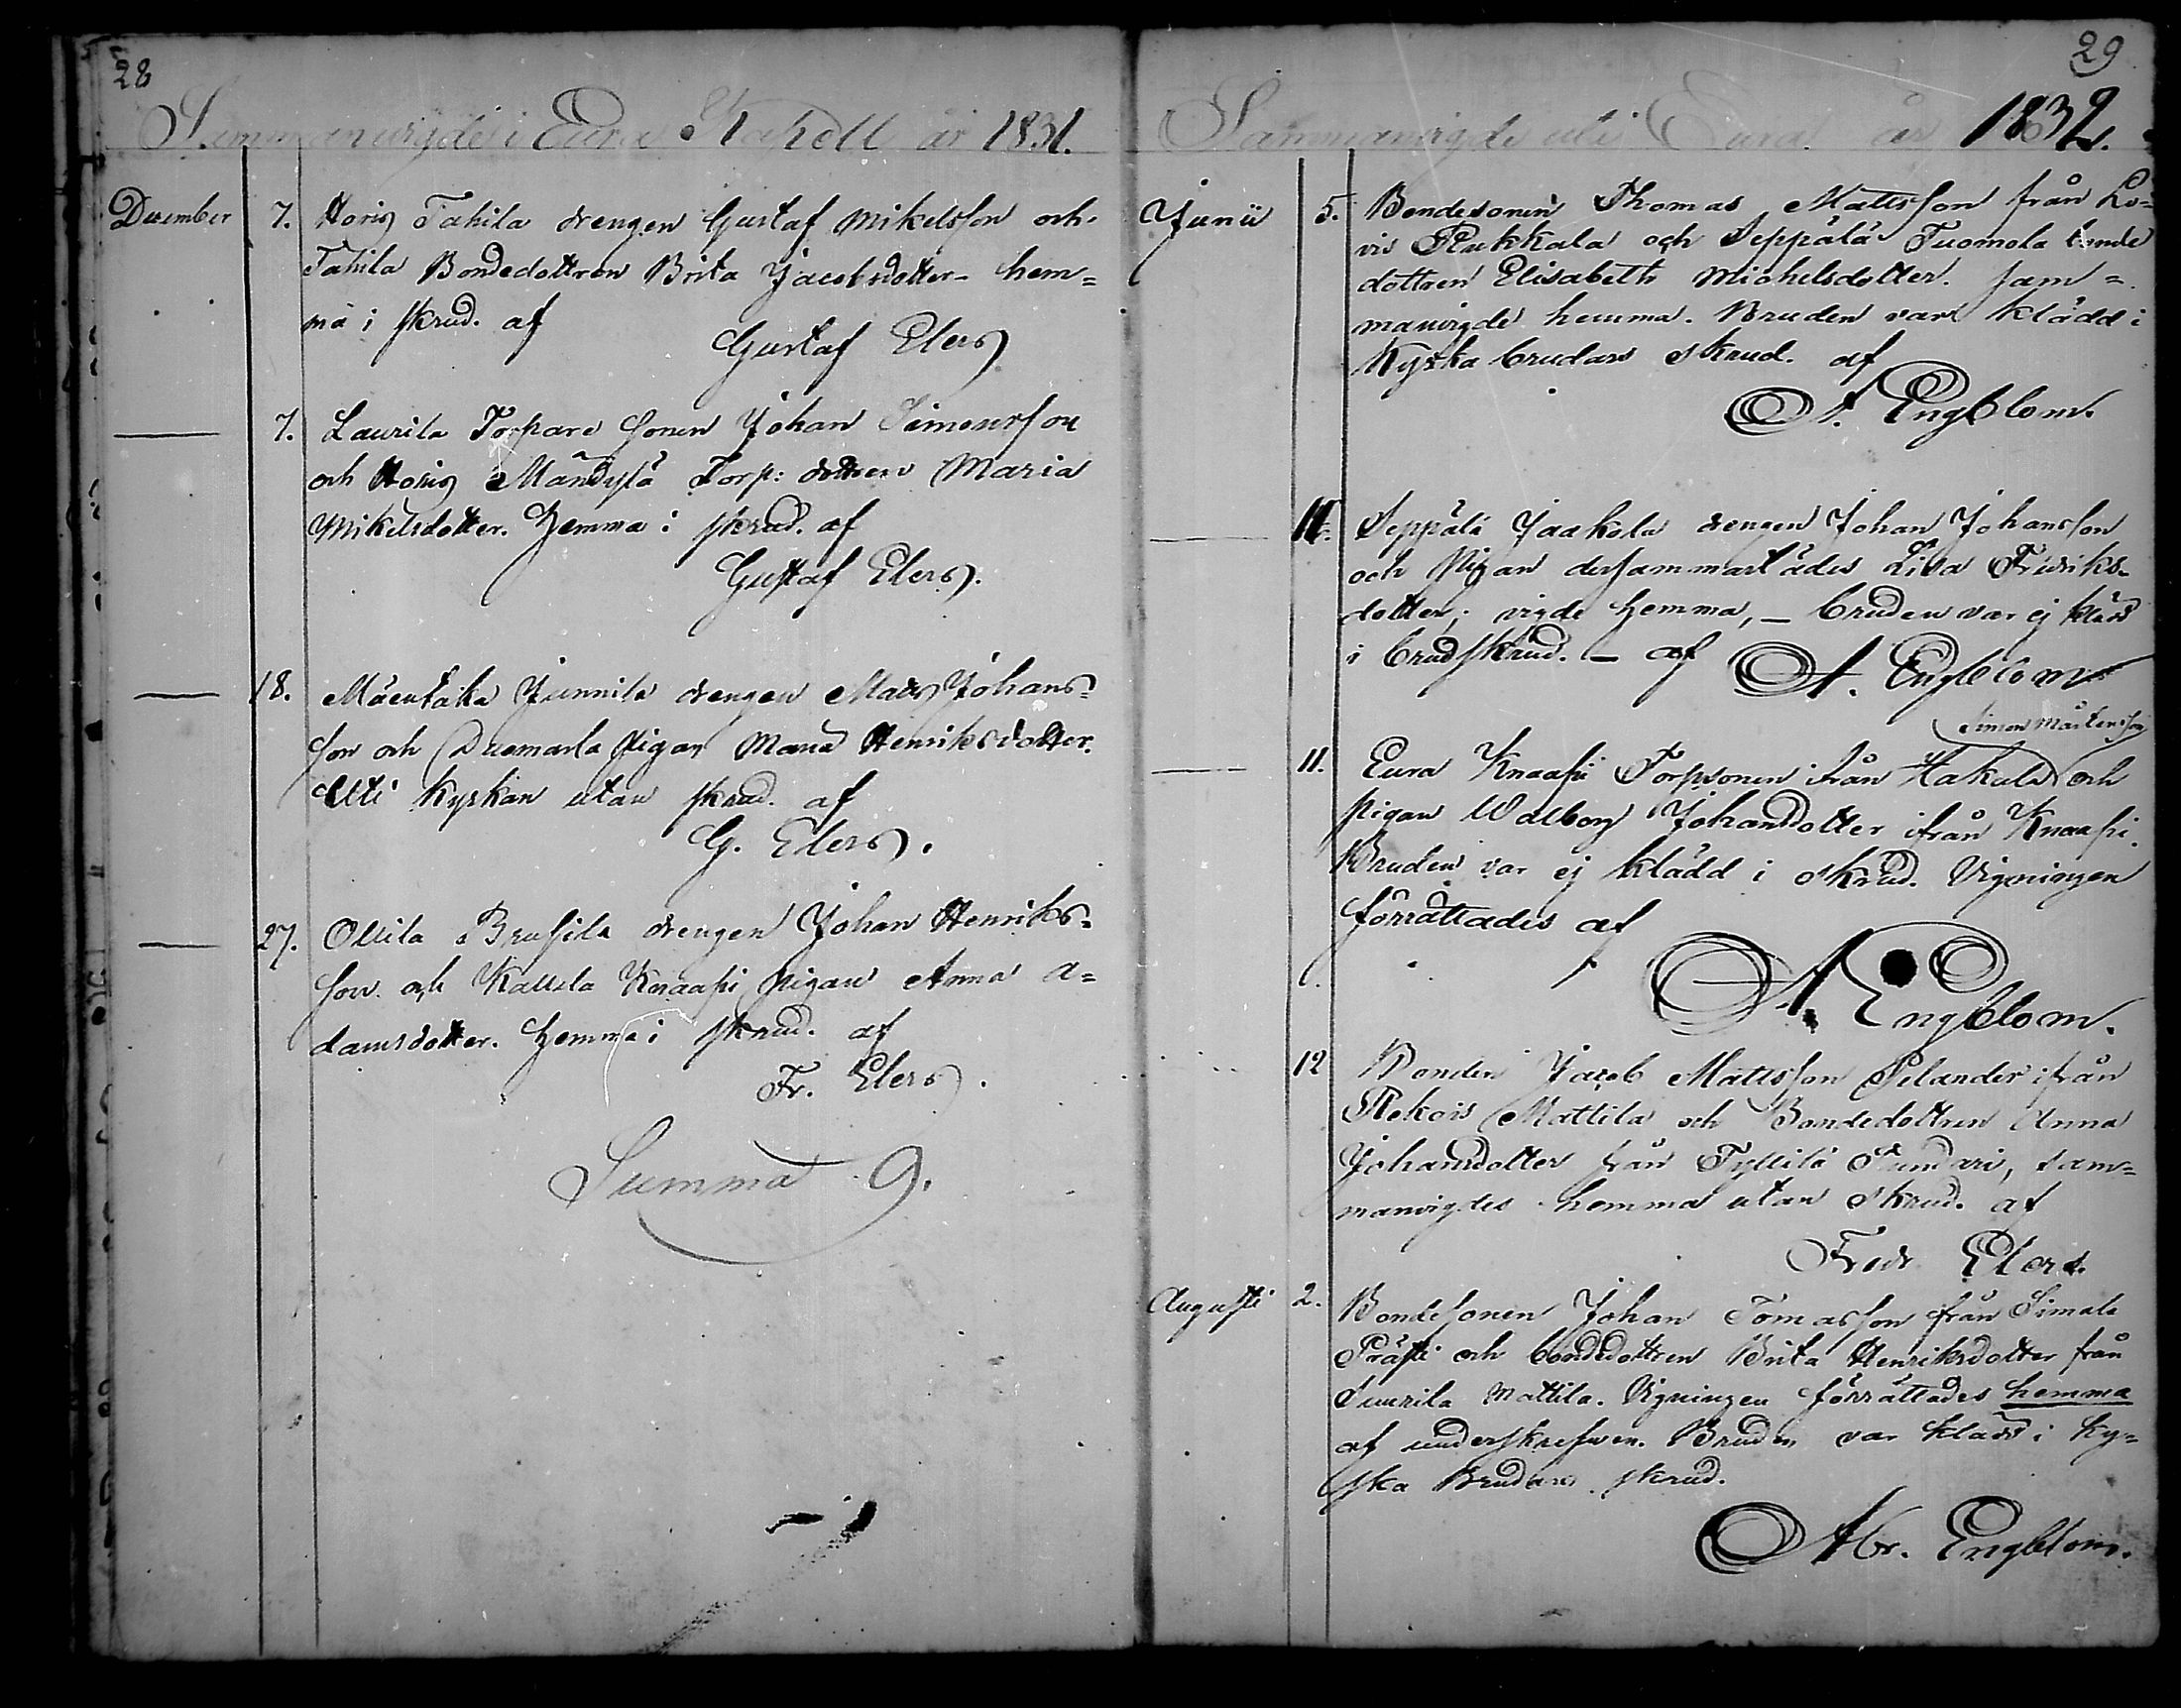 28
Sammanvigde i Eura Kapell år 1831.
December 7. Horis Tahila drengen Gustaf Mikelsson och
Tahila Bondedottren Brita Jacobsdotter hem=
ma i skrud. af
Gustaf Elers
— 7. Laurila Torpare sonen Johan Simonsson
och Horis Mandyla Torp: dottren Maria
Mikelsdotter. Hemma i skrud. af
Gustaf Elers.
— 18. Mäentaka Junnila drengen Mats Johans=
son och pigan Maria Henriksdotter.
Uti kyrkan utan skrud. af
G. Elers.
— 27. Ollila Brusila drengen Johan Henriks=
son och Kauttla Knaapi pigan Anna A=
damsdotter. Hemma i skrud. af
Fr. Elers.
Summa 9.
29
Sammanvigde uti Eura år 1832.
Junii 5. Bondesonen Thomas Mattsson från
Pukkala och Seppälä Tuomola bonde
dottren Elisabeth Michelsdotter. sam=
manvigde hemma. Bruden var klädd i
Kyska brudars skrud. af
A. Engblom.
— 11. Seppälä Jaakola drengen Johan Johansson
och Pigan dersammastädes Lisa Fredriks=
dotter; vigde hemma, — bruden var ej klädd
i brudskrud. — af A. Engblom
Simon Mårtensson
— 11. Eura Knaapi Torpsonen ifrån Hakula och
pigan Walborg Johansdotter ifrån Knaapi.
Bruden var ej klädd i skrud. Vigningen
förrättades af
A. Engblom.
12 Bonden Jacob Mattsson Selander ifrån
Mattila och Bondedottren Anna
Johansdotter från Tyllilä, sam=
manvigdes hemma utan skrud. af
Fredr Elers.
Augusti 2. Bondesonen Johan Tomasson från Simala
Prästi och bondedottren Brita Henriksdotter från
Suurila Mattila. Vigningen förrättades hemma
af underskrefven. Bruden var klädd i ky=
ska Brudars skrud.
Abr. Engblom.